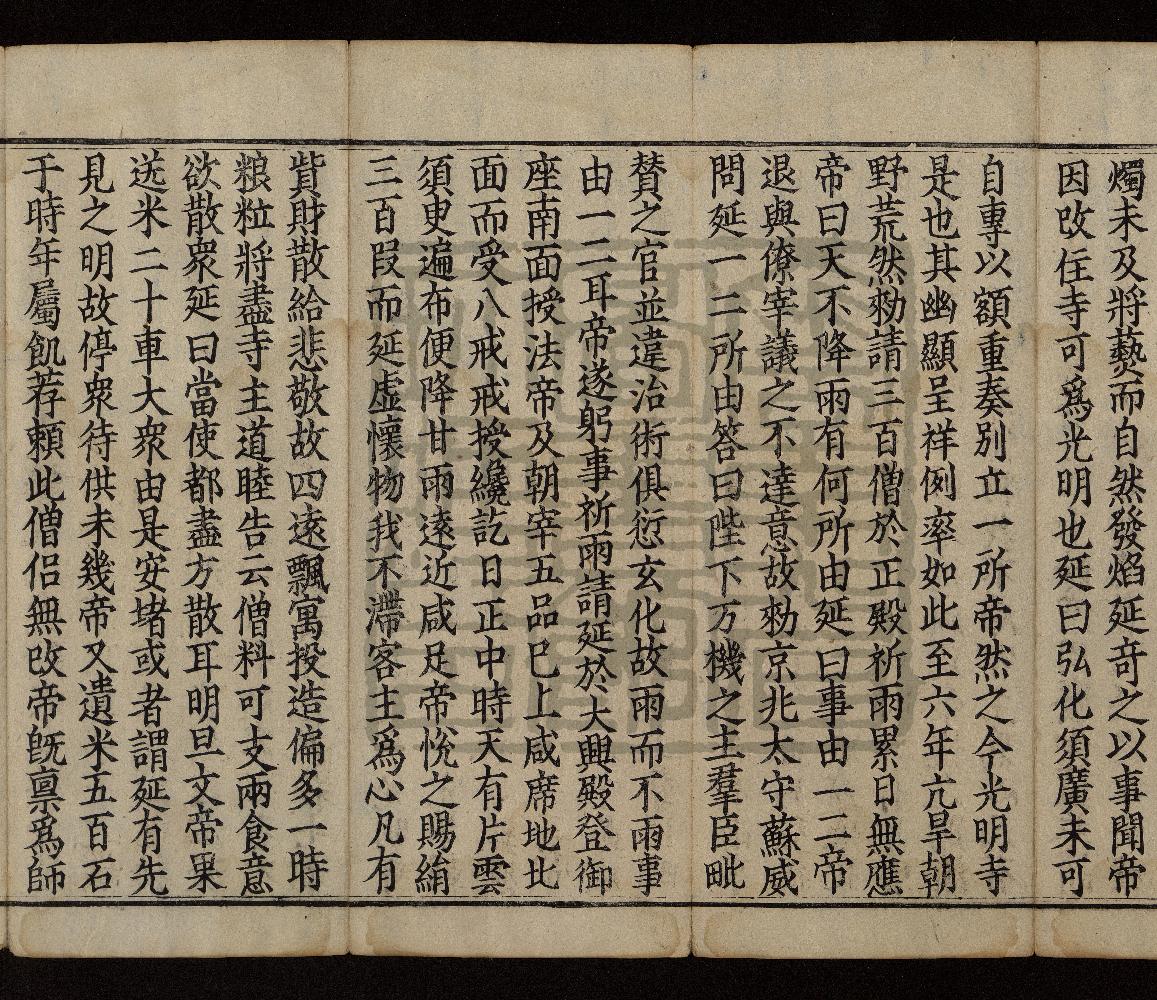 燭未及將藝而自然發焰延竒之以事聞帝
因改住寺可爲光明也延曰弘化須廣未可
自專以額重奏別立一所帝然之今光明寺
是也其幽顯呈祥例率如此至六年亢旱朝
野荒然勑請三百僧於正殿祈雨累日無應
帝曰天不降雨有何所由延曰事由一二帝
退與僚宰議之不達意故勑京兆太守蘇威
問延一二所由答曰陛下万機之主羣臣毗
賛之官並違治術俱愆玄化故雨而不雨事
由一二耳帝遂躬事祈雨請延於大興殿登御
座南面授法帝及朝宰五品已上咸席地北
面而受八戒戒授纔訖日正中時天有片雲
須臾遍布便降甘雨遠近咸足帝恱之賜絹
三百叚而延虚懷物我不滯客主爲心凡有
貲財散給悲敬故四遠飄寓投造偏多一時
粮粒將盡寺主道睦告云僧料可支兩食意
欲散衆延曰當使都盡方散耳明旦文帝果
送米二十車大衆由是安堵或者謂延有先
見之明故停衆待供未幾帝又遺米五百石
于時年屬飢荐頼此僧侣無改帝旣禀爲師